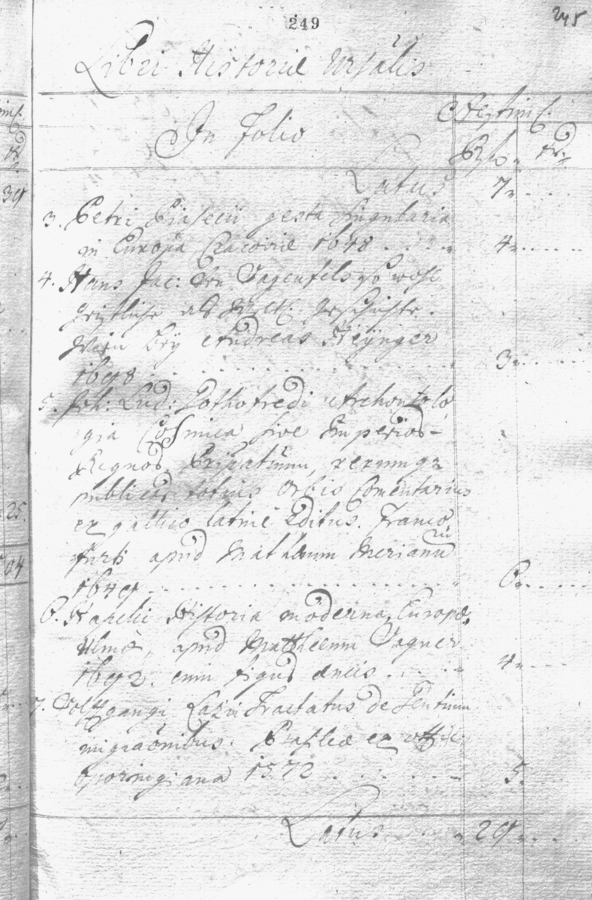 249
245
Libri Historici Ursalis
Aestim.
In Folio
Rfl. xr.
Latus 7
3. Petri Piasecii gesta Singularia
in Europa Cracoviæ 1648 4
4. Hans Jac: von Wagenfels
geistliche als Weltl. Geschichte.
Wien bey Andreas Heÿnger
1698 3
5. Joh: Lud: Gothofredi Archontolo
gia Cosmica sive Imperior
Regnor, Principatuum, rerumqz
publicar totius Orbis Comentarius
ex gallico latine Editus. Franco
furti apud Mathæum Merianu
1649 6
6. Historia moderna Europæ,
Ulmæ, apud Mattheum Wagner
1692. cum figuris æneis 4
7. Wolfgangi Lazii Tractatus de Gentium
migraõnibus. Basileæ ex offic:
Oporiniana 1572 5
Latus 29